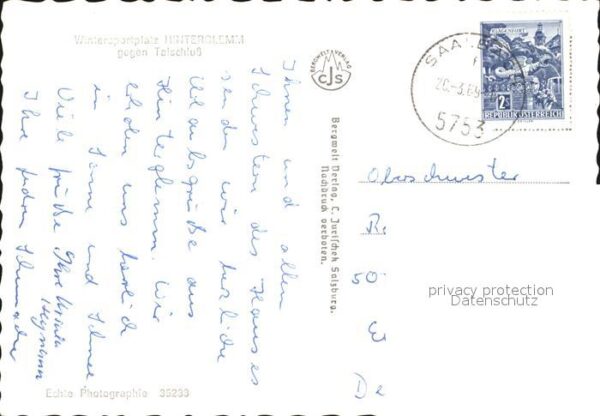 Wintersportplatz HINTERGLEMM
gegen Talschluß
BERGWELT-VERLAG
CJS
SAALB
20.-3.69
5753
KLAGENFURT
2S
REPUBLIK ÖSTERREICH
Ihnen und allen
Schwestern des Hauses
senden wir herzliche
Urlaubsgrüße aus
Hinterglemm. Wir
erholen uns herrlich
in Sonne und Schnee
Viele Grüße Ihre
Ihre
Bergwelt Verlag, C. Jurischek Salzburg.
Nachdruck verboten.
Oberschwester
R.
50
W
D2
privacy protection
Datenschutz
Echte Photographie 35233